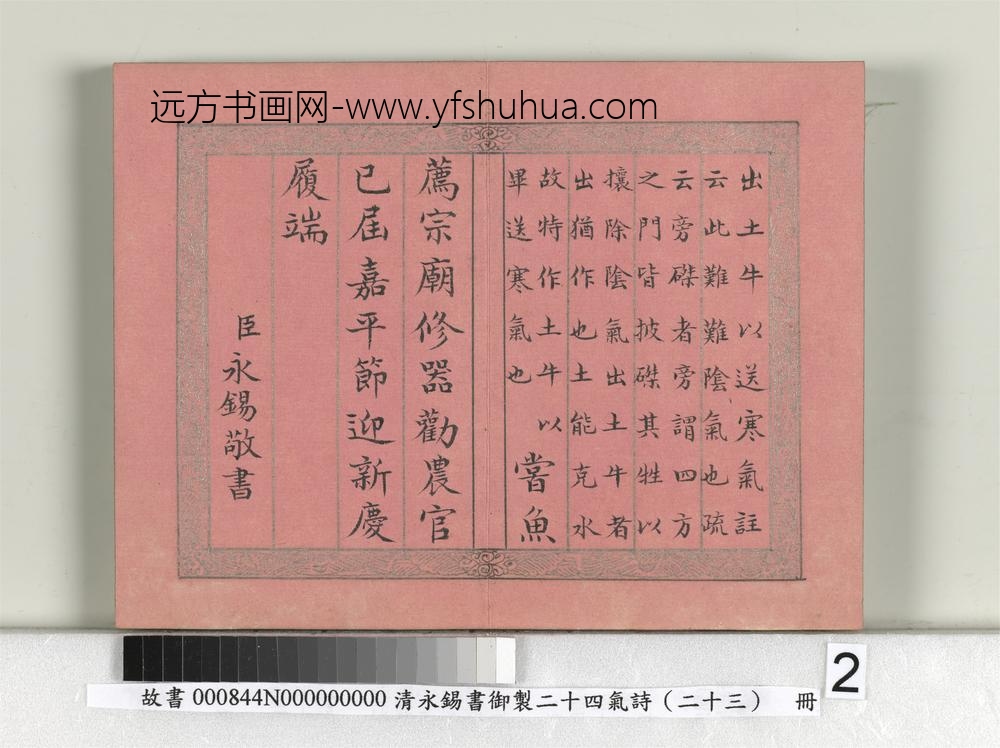 远方书画网-www.yfshuhua.com
出土牛以送寒氣註
云此難難陰氣也疏
云旁磔者旁謂四方
之門皆披磔其牲以
攘除陰氣出土牛者
出猶作也土能克水
故特作土牛以
畢送寒氣也
嘗魚
薦宗廟修器勸農官
已屆嘉平節迎新慶
履端
臣永錫敬書
2
故書 000844N000000000 清永錫書御製二十四氣詩（二十三） 冊